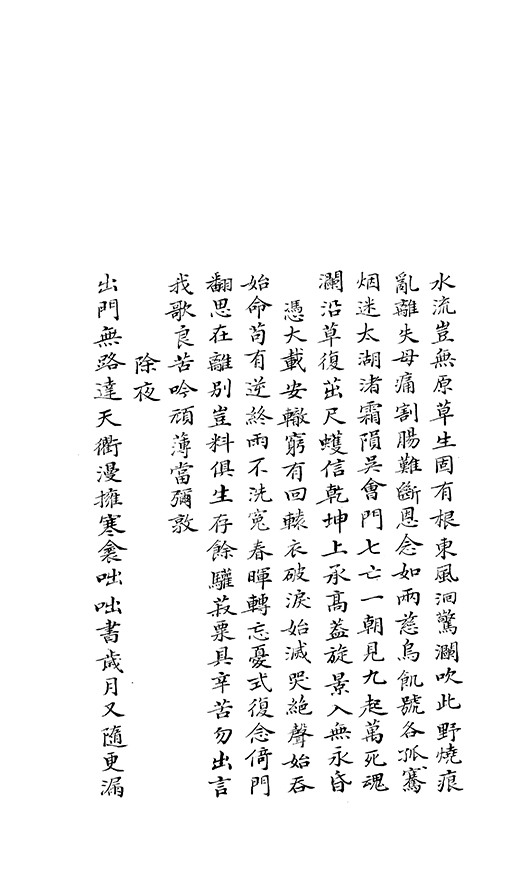 水流豈無原草生固有根東風洄驚瀾吹此野燒痕
亂離失母痛割腸難斷恩念如兩慈烏飢號各孤騫
烟迷太湖渚霜隕吳會門七亡一朝見九起萬死魂
瀾沿草復茁尺蠖信乾坤上承高葢旋景入無永昏
憑大載安轍窮有回轅衣破淚始滅哭絕聲始吞
始命苟有逆終雨不洗冤春暉轉忘憂式復念倚門
翻思在離別豈料俱生存餘驩菽粟具辛苦勿出言
我歌良苦吟頑薄當彌敦
除夜
出門無路達天衢漫擁寒衾咄咄書歲月又隨更漏